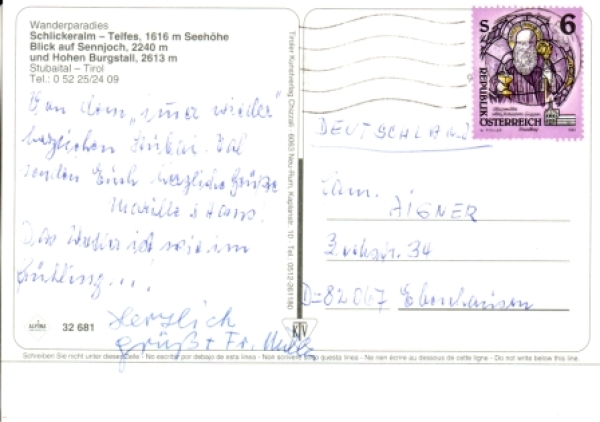 Wanderparadies
Schlickeralm – Telfes, 1616 m Seehöhe
Blick auf Sennjoch, 2240 m
und Hohen Burgstall, 2613 m
Stubaital – Tirol
Tel.: 0 52 25/24 09
Von dem „immer wieder"
herzlichen Stubai. Tal
senden Euch herzliche Grüße
Hans.
Das Wetter ist wie im
Frühling...!
Herzlich
grüßt Fr.
ALPINA
32 681
Tiroler Kunstverlag Chizzali · 6063 Neu-Rum, Kaplanstr. 10 · Tel. 0512-261180
KTV
S 6
REPUBLIK
ÖSTERREICH
DEUTSCHLAND
Fam.
AIGNER
34
D=82067 Ebenhausen
Schreiben Sie nicht unter dieser Zeile - No escribir por debajo de esta línea - Non scrivere sotto questa linea - Ne rien écrire au dessous de cette ligne - Do not write below this line